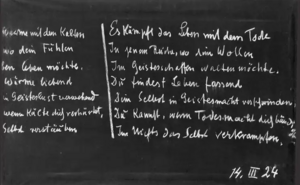 warme mit den Kalten
wo dein Fühlen
ben leben möchte.
Wärme liebend
in Geisteslust
wenn Kälte dich verhärtet,
Selbst verstäuben
Es kämpft das Leben mit dem Tode
In jenem Reiche, wo dein Wollen
Im Geistesschaffen walten möchte.
Du findest Leben fassend
Dein Selbst in Geistesmacht verschwinden.
Du kannst, wenn Todesmacht dich bändigt,
Im Nichts das Selbst verkrampfen.
14. III 24